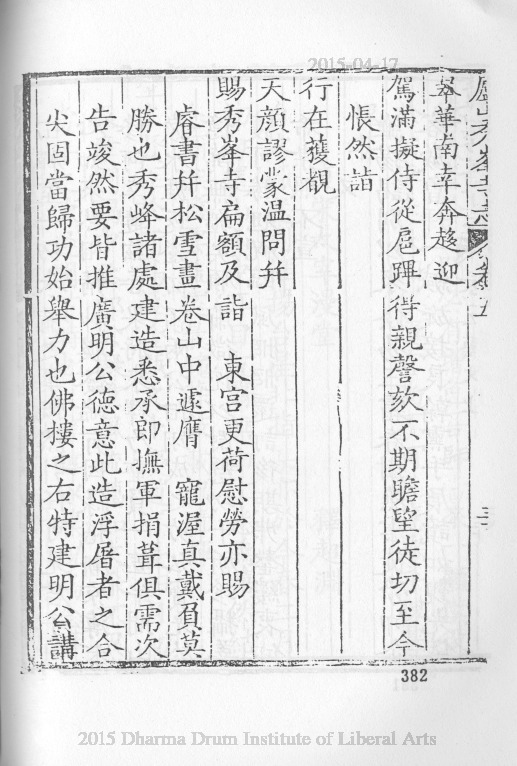 2015-04-17
廬山秀峯寺志 卷五 三
翠華南幸奔趍迎
駕滿擬侍從扈蹕得親謦欬不期瞻望徒切至今
悵然詣
行在獲覩
天顔謬蒙温問幷
賜秀峯寺扁額及詣　東宫更荷慰勞亦賜
睿書幷松雪畫卷山中遽膺　寵渥真戴負莫
勝也秀峰諸處建造悉承即撫軍捐葺俱需次
告竣然要皆推廣明公德意此造浮屠者之合
尖固當歸功始舉力也佛樓之右特建明公講
382
2015 Dharma Drum Institute of Liberal Arts